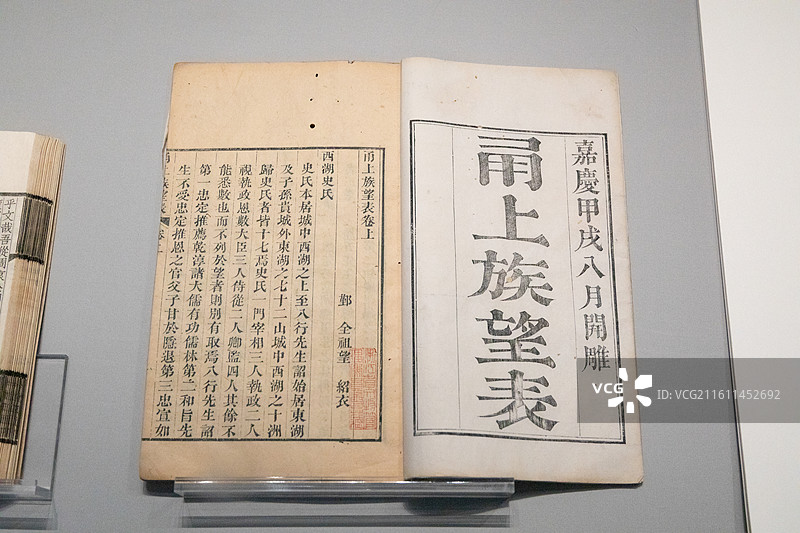 嘉慶甲戌八月開雕
甬上族望表
甬上族望表卷上
鄞 全祖望 紹衣
西湖史氏
史氏本居城中西湖之上至八行先生詔始居東湖
及子孫貴城外東湖之七十二山城中西湖之十洲
歸史氏者皆十七焉史氏一門宰相三人執政二人
視執政恩數大臣三人侍從二人卿監四人其餘不
能悉數也而不列於望者則別有取焉八行先生詔
第一忠定推薦乾淳諸大儒有功儒林第二和旨先
生不受忠定推恩之官父子甘於隱退第三忠宣如
VCG
ID:VCG211611452692